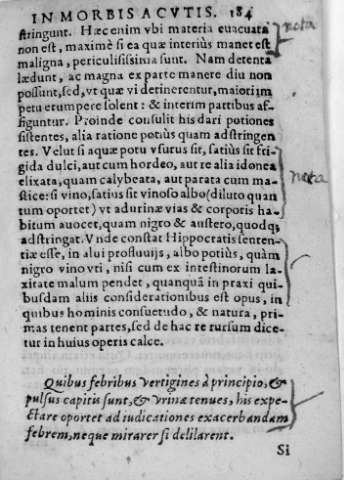 IN MORBIS ACVTIS. 184
ſtringunt. Hæc enim vbi materia euacuata
non eſt, maximè ſi ea quæ interiùs manet eſt
maligna, periculiſsiſima ſunt. Nam detenta
lædunt, ac magna ex parte manere diu non
poſſunt, ſed, vt quæ vi detinerentur, maiori im
petu erumpere ſolent: & interim partibus af-
figuntur. Proinde conſulit his dari potiones
ſiſtentes, alia ratione potiùs quam adſtringen
tes. Velut ſi aquæ potu vſurus ſit, ſatiùs ſit fri-
gida dulci, aut cum hordeo, aut re alia idonea
elixata, quam calybeata, aut parata cum ma-
ſtice: ſi vino, ſatius ſit vinoſo albo (diluto quan
tum oportet) vt ad urinæ vias & corporis ha-
bitum auocet, quam nigro & auſtero, quodq;
adſtringat. Vnde conſtat Hippocratis ſenten-
tiæ eſſe, in alui profluuijs, albo potiùs, quàm
nigro vino vti, niſi cum ex inteſtinorum la-
xitate malum pendet, quanquā in praxi qui-
buſdam aliis conſiderationibus eſt opus, in
quibus hominis conſuetudo, & natura, pri-
mas tenent partes, ſed de hac re rurſum dice-
tur in huius operis calce.
Quibus febribus vertigines à principio, &
pulſus capitis ſunt, & vrinæ tenues, his expe-
ctare oportet ad iudicationes exacerbandam
febrem, neque mirarer ſi delirarent.
Si
nota
nota